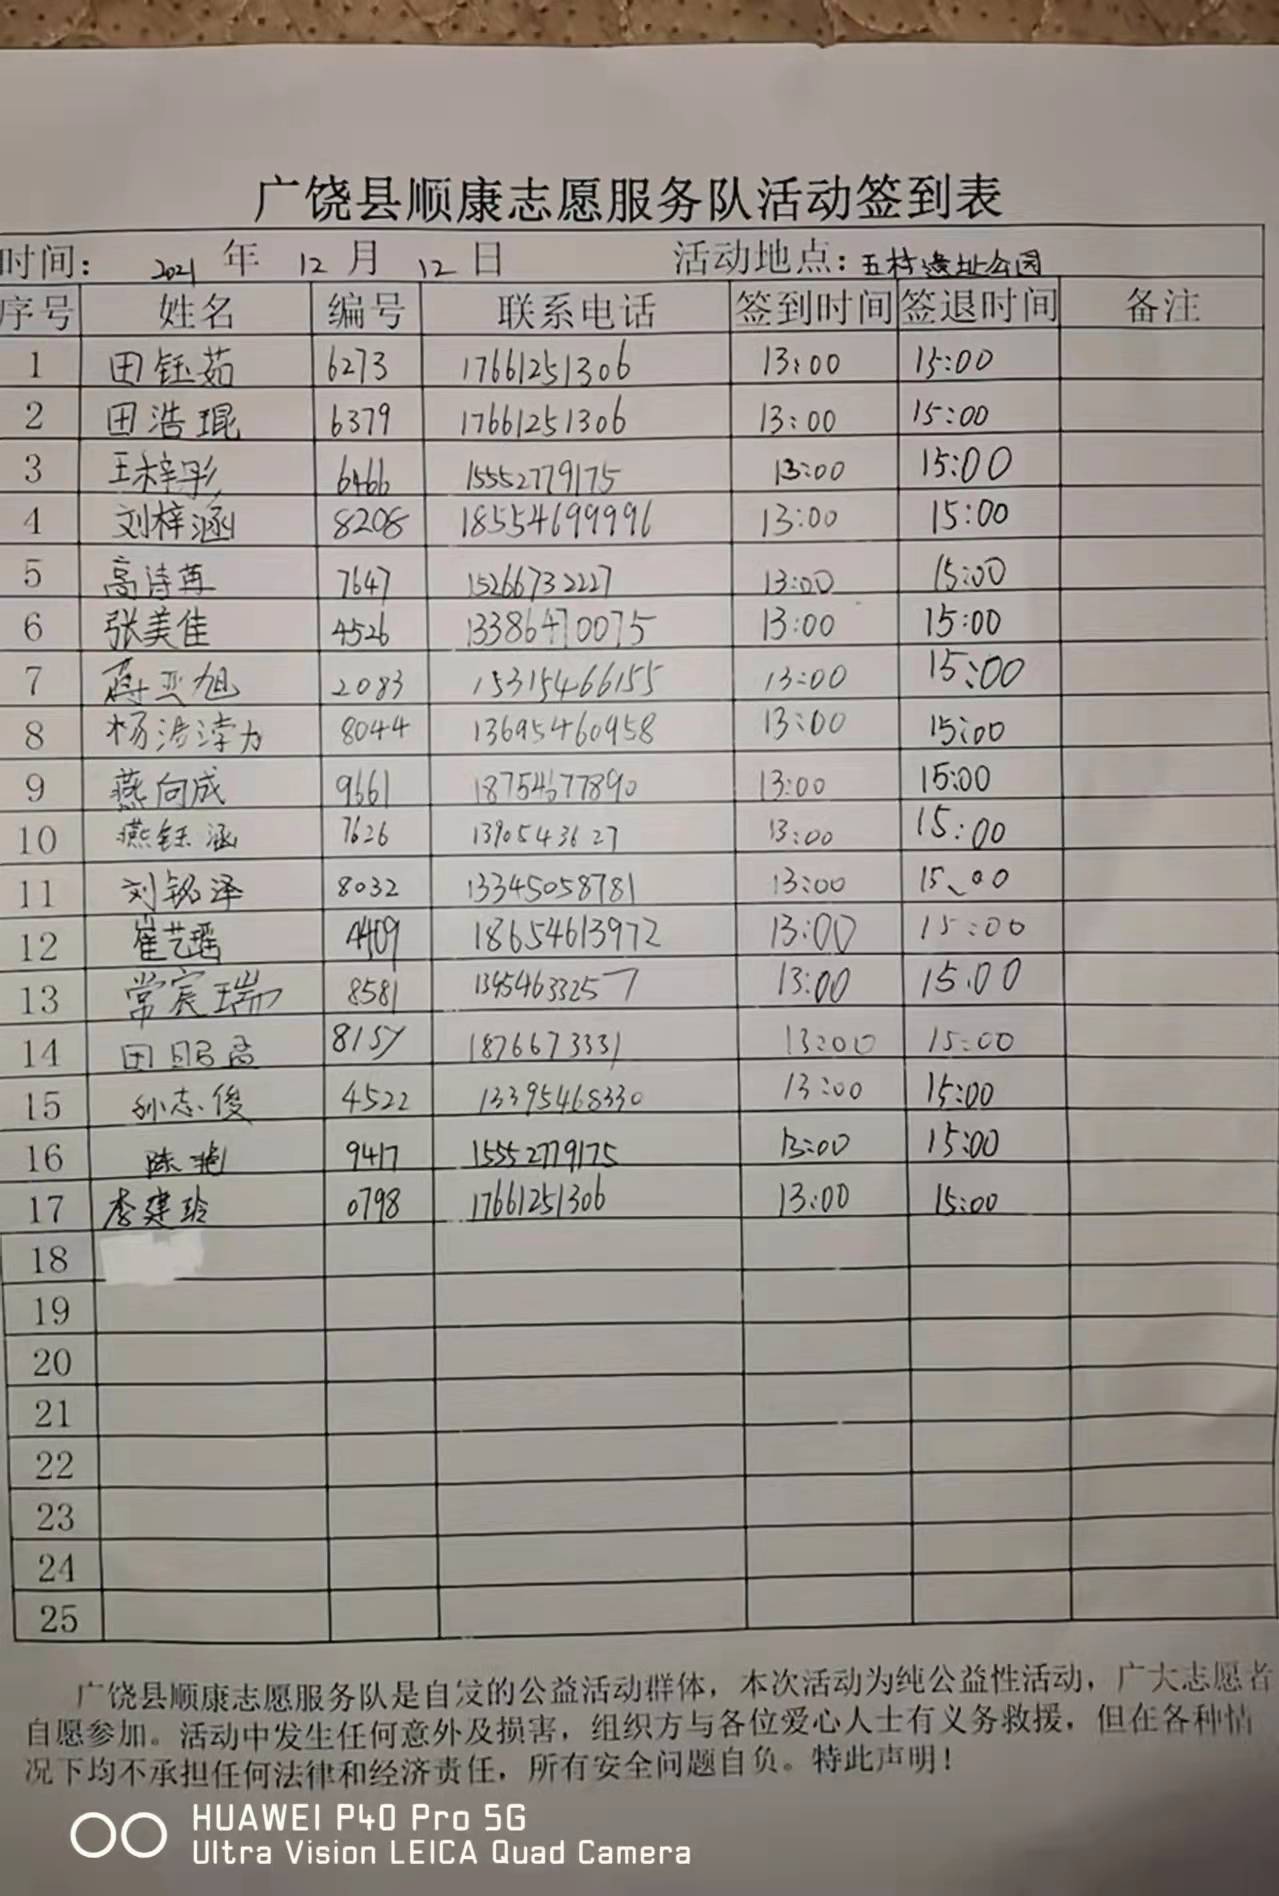 广饶县顺康志愿服务队活动签到表
时间： 2021 年 12 月 12 日 活动地点：五村遗址公园
序号 姓名 编号 联系电话 签到时间 签退时间 备注
1 田钰茹 6273 17661251306 13:00 15:00
2 田浩琨 6379 17661251306 13:00 15:00
3 王梓彤 6466 15552779175 13:00 15:00
4 刘梓涵 8208 18554699996 13:00 15:00
5 高诗苒 7647 15266732227 13:00 15:00
6 张美佳 4526 13386470075 13:00 15:00
7 蒋亚旭 2083 15315466155 13:00 15:00
8 杨 8044 13695460958 13:00 15:00
9 燕向成 9661 18754677890 13:00 15:00
10 燕钰涵 7626 1390543627 13:00 15:00
11 刘铭泽 8032 13345058781 13:00 15:00
12 崔艺瑶 4409 18654613972 13:00 15:00
13 常宸瑞 8581 13954633257 13:00 15:00
14 田 1876673331 13:00 15:00
15 孙志俊 4522 13395468330 13:00 15:00
16 陈艳 9417 15552779175 13:00 15:00
17 李建玲 0798 17661251306 13:00 15:00
18
19
20
21
22
23
24
25
广饶县顺康志愿服务队是自发的公益活动群体，本次活动为纯公益性活动，广大志愿者
自愿参加。活动中发生任何意外及损害，组织方与各位爱心人士有义务救援，但在各种情
况下均不承担任何法律和经济责任，所有安全问题自负。特此声明！
HUAWEI P40 Pro 5G
Ultra Vision LEICA Quad Camera